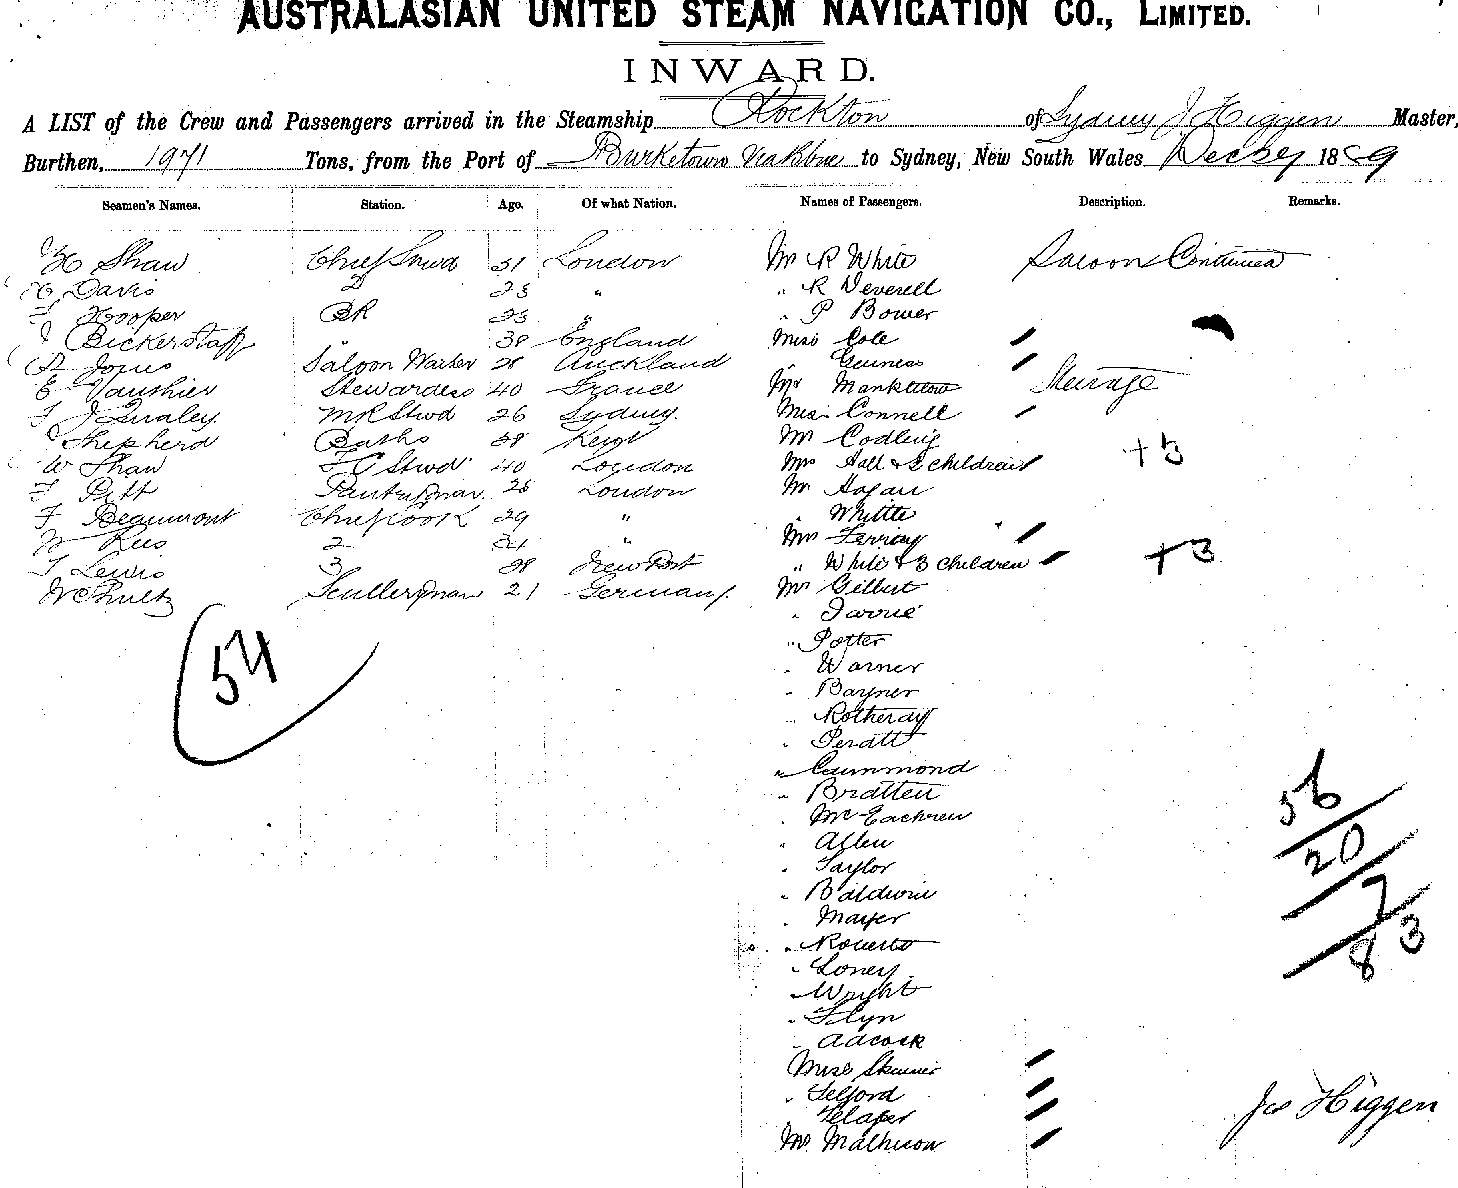 AUSTRALASIAN UNITED STEAM NAVIGATION CO., LIMITED.
INWARD.
A LIST of the Crew and Passengers arrived in the Steamship Rockton of Sydney J Higgen Master,
Burthen, 1971 Tons, from the Port of Burketown to Sydney, New South Wales 1889
Seamen's Names. Station. Age. Of what Nation. Names of Passengers. Description. Remarks.
H Shaw Chief Stwd 31 London Mr R White Saloon Continued
H Davis 2 23 " " R Deverell
Hooper BR 23 " " P Bower
J Bickerstaff " 38 England Miss Cole
A Jones Saloon Waiter 28 Auckland "
E Vauthier Stewardess 40 France Mr Manktelow Steerage
F J Stwd 26 Sydney. Miss Connell
Shepherd Baths 28 Mr Codling
W Shaw F C Stwd 40 London Mrs Hall & children +5
F Pitt Pantryman 28 London Mr Hogan
F Beaumont Chief Cook 29 " " Whittle
W 2 21 " Mrs
T Lewis 3 28 " White & 3 children +3
Sculleryman 21 Germany Mr Gilbert
"
" Potter
" Warner
" Bayner
" Rotheray
"
"
" Bratten
" McEachren
" Allen
" Taylor
" Baldwin
" Mayer
" Roberts
" Loney
" Wright
" Flyn
" Adcock
Miss Skinner
" Telford
"
Mrs Mathieson
54
56
20
7
83
Jas Higgen